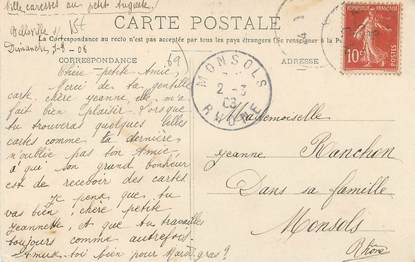 Mille caresses au petit
CARTE POSTALE
La Correspondance au recto n'est pas acceptée par tous les pays étrangers (Se renseigner à la Poste)
CORRESPONDANCE
ADRESSE
Belleville s/ 
Dimanche,
69
Chère petite Amie,
Merci de ta gentille
carte, chère Jeanne, elle m'a
fait bien plaisir. Lorsque
tu trouveras quelques belles
cartes comme la dernière
n'oublie pas ton Amie,
à que son grand bonheur
est de recevoir des cartes.
Je pense que tu
vas bien, chère petite
Jeannette, et que tu travailles
toujours comme autrefois.
Amuse toi bien pour Mardi gras?
MONSOLS
2 - 3
RHONE
10
Mademoiselle
Jeanne Ranchon
Dans sa famille
Monsols
Rhône